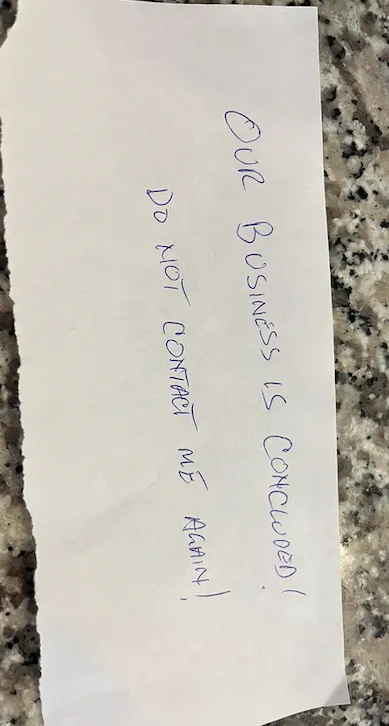 OUR BUSINESS IS CONCLUDED!
DO NOT CONTACT ME AGAIN!